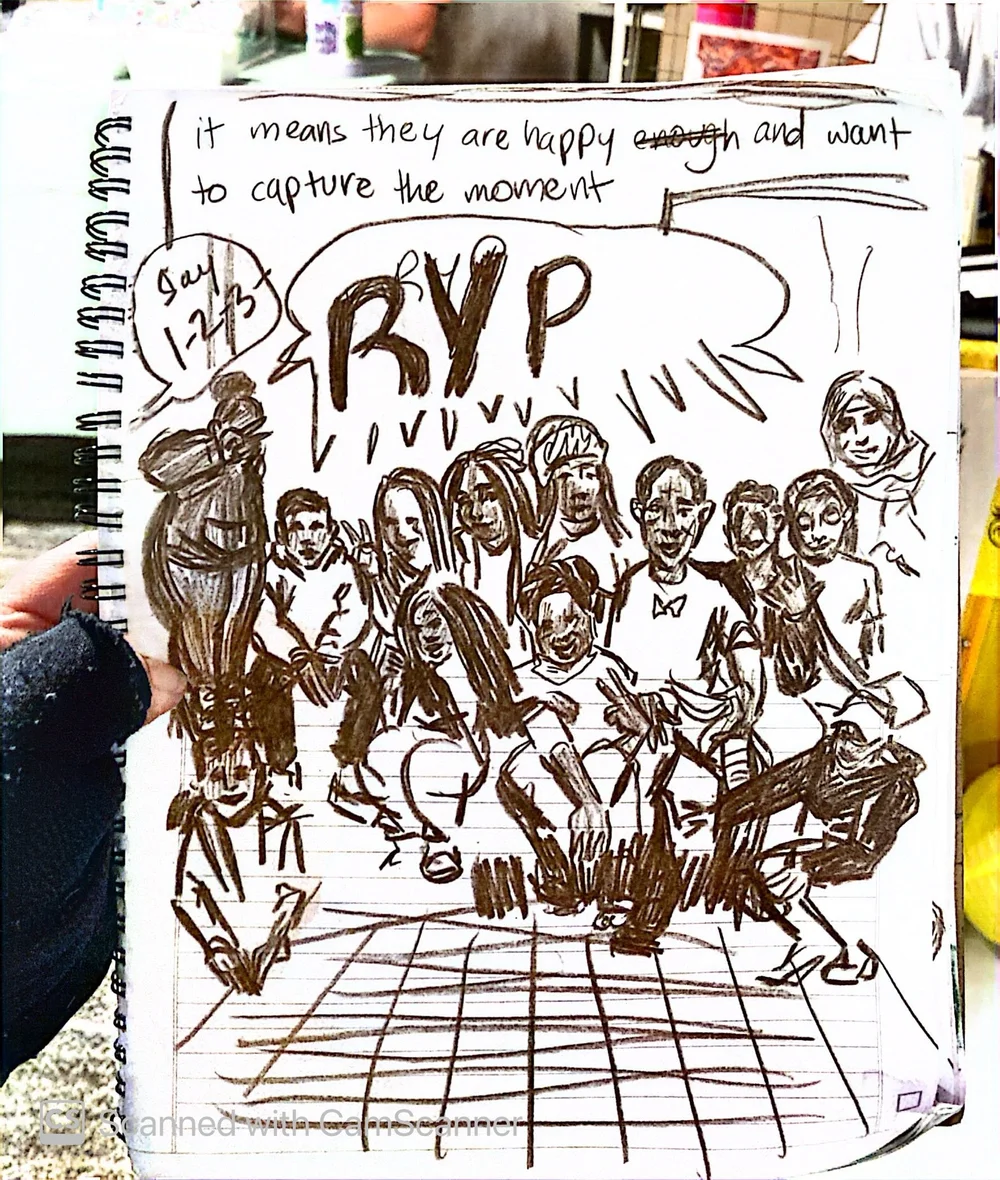 it means they are happy enough and want
to capture the moment
Say
1-2-3
RYP
Scanned with CamScanner